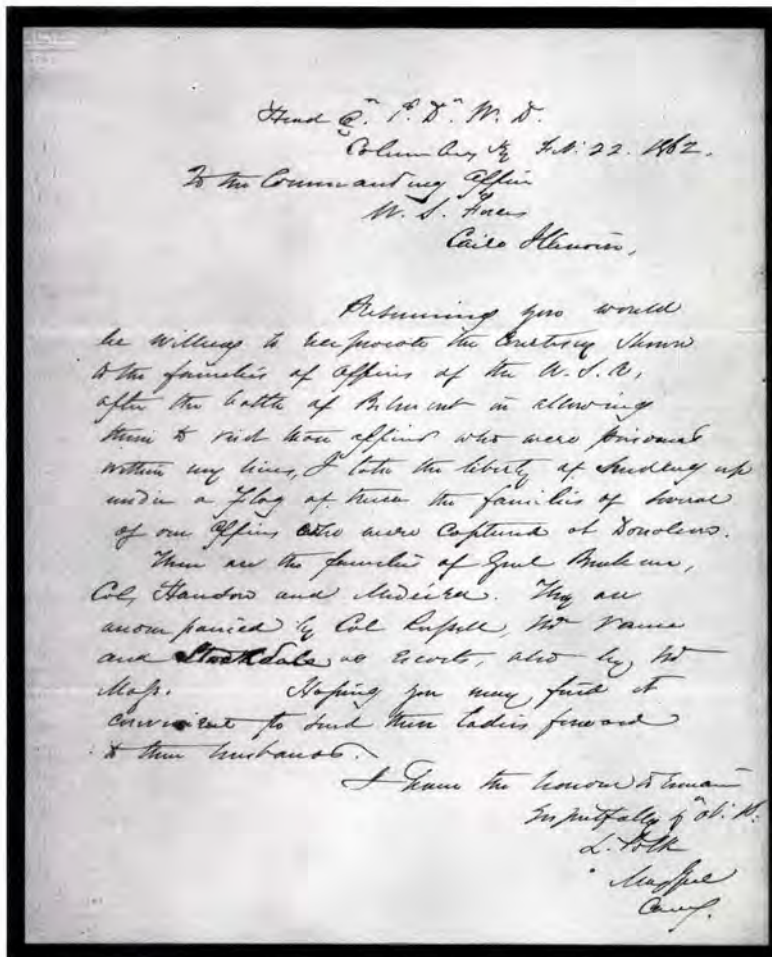 Head Qrs 1st Dn W. D.
Columbus, Ky Feb. 22. 1862.
To the Commanding Officer
U. S. Forces
Cairo Illinois,
Presuming you would
be willing to reciprocate the courtesy shown
to the families of officers of the U. S. A,
after the battle of Belmont in allowing
them to visit those officers who were prisoners
within my lines, I take the liberty of sending up
under a Flag of truce the families of several
of our officers who were captured at Donelson.
These are the families of Genl Buckner,
Col, Hanson and Madeira. They are
accompanied by Col Russell, Mr Vance
and Stockdale as escorts, also by Mr
Mass. Hoping you may find it
convenient to send these ladies forward
to their husbands.
I have the honour to remain
respectfully yr ob. s.
L. Polk
Maj Genl
Comg.